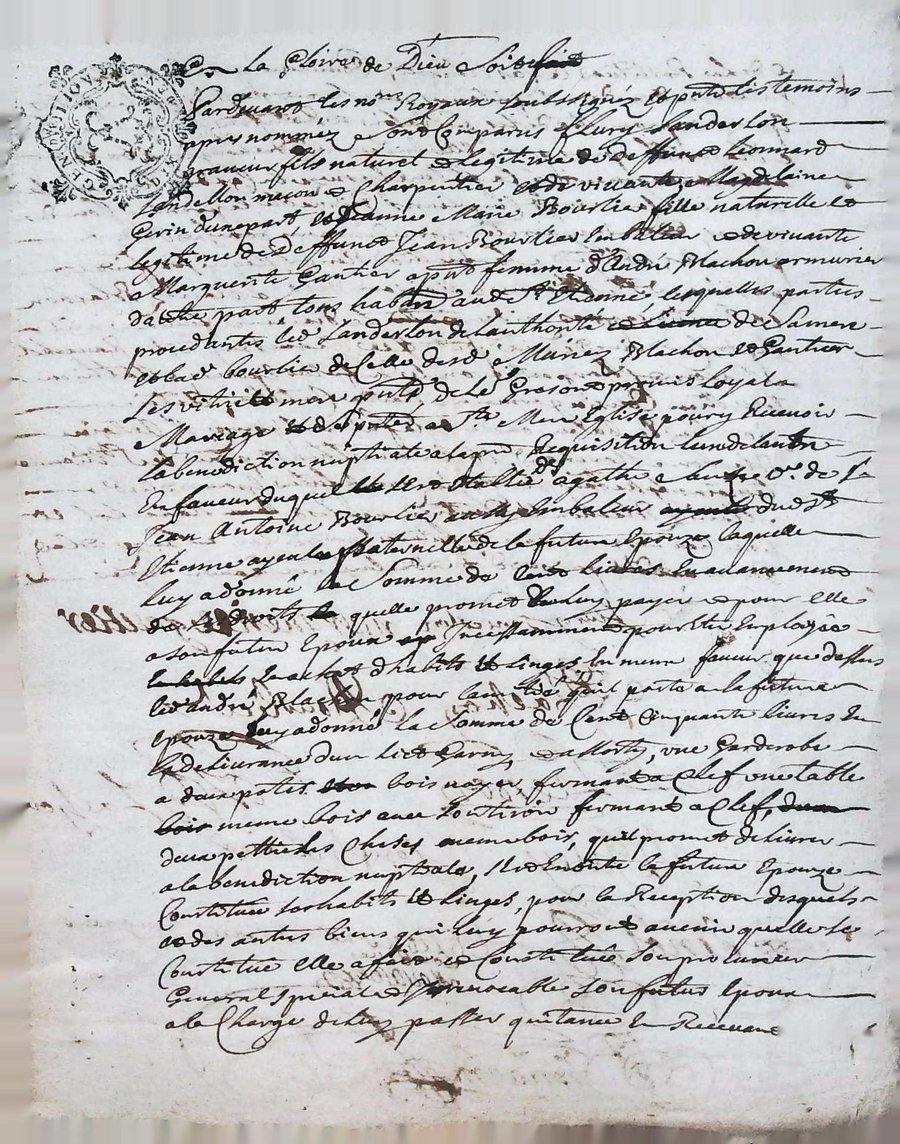 A La Gloire de Dieu Soit fait
Pardevant les no.res Royaux soubsignéz et pnts les temoins
apres nomméz Sont Comparus fleury Landerlon
graveur fils naturel et legitime de deffunct Leonnard
Landellon maçon et Charpentier et de vivante Magdelaine
Gerin dunepart, et Jeanne Marie Bourlier fille naturelle et
legitime de Deffunct Jean Bourlier Embaleur et de vivante
Marguerite Gantier a pnt femme d'André Machon armurier
dautre part, tous habant audt St Etienne, lesquelles parties
procedantes led Landerlon de lauthorité de Sa mere
et lad bourlier de Celle desd Mariéz Machon et Gantier
Ses mere pnts, de Le Gré ont promis Loyal
Mariage et de Se pnter a Ste Mere Eglise pour y Recevoir
La benediction nuptiale a la pre Requisition lun de lautre
En faveur duquel Est Establie de agathe ve de Sr
Jean Antoine Bourlier aussy Embaleur dudt St
Etienne ayeule Maternelle de la future Epouze laquelle
luy a donné la Somme de Cent livres En avancement
de Ses droits quelle promet luy payer et pour Elle
a Son futur Epoux Incessamment pour Etre Employée
En achat d'habits et Linges En meme faveur que dessus
led andré Machon pour lamitié quil porte a la future
epouze luy a donné la Somme de Cent Cinquante livres En
la delivrance dun lict Garny et assorty, une Garderobe
a deux portes bois noyer, fermant a Clef une table
meme bois avec Son tiroir fermant a Clef,
deux petites Chaises meme bois, quil promet delivrer
a la benediction nuptiale, Et Ensuite la future Epouze
Constitue Ses habits et Linges, pour la Reception desquels
et des autres biens qui luy pourront avenir quelle Se
Constitue Elle a fait et Constitué Son procureur
General Special et Irrevocable Son futur Epoux
a la Charge de luy passer quitance En Recevant